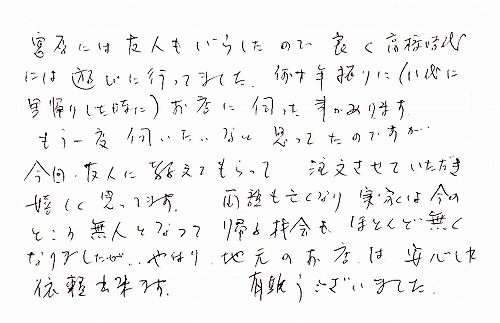 宮原には友人もいらしたので 良く高校時代
には遊びに行ってました。何十年振りに(以代に
里帰りした時に)お店に伺った事があります。
もう一度伺いたいなと思ってたのですが
今回、友人に教えてもらって 注文させていただき
嬉しく思ってます。 両親も亡くなり実家は今の
ところ無人となって帰る機会も ほとんど無く
なりましたが、やはり地元のお店は安心して
依頼出来ます。 有難うございました。